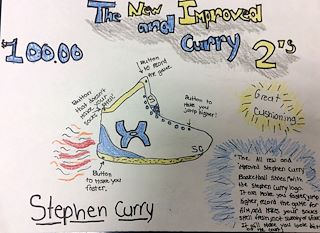 The New
and Improved
$100.00
Curry 2's
Button
to record
the game.
Button
that doesn't
make your
socks smell!
Button to
make you
jump higher!
Great
Cushioning
SC
Button
to make you
faster.
Stephen Curry
"The All new and
improved Stephen Curry
Basketball shoes with
the Stephen Curry logo.
It can make you faster, jump
higher, record the game for
film and makes your socks
smell
It will make you look